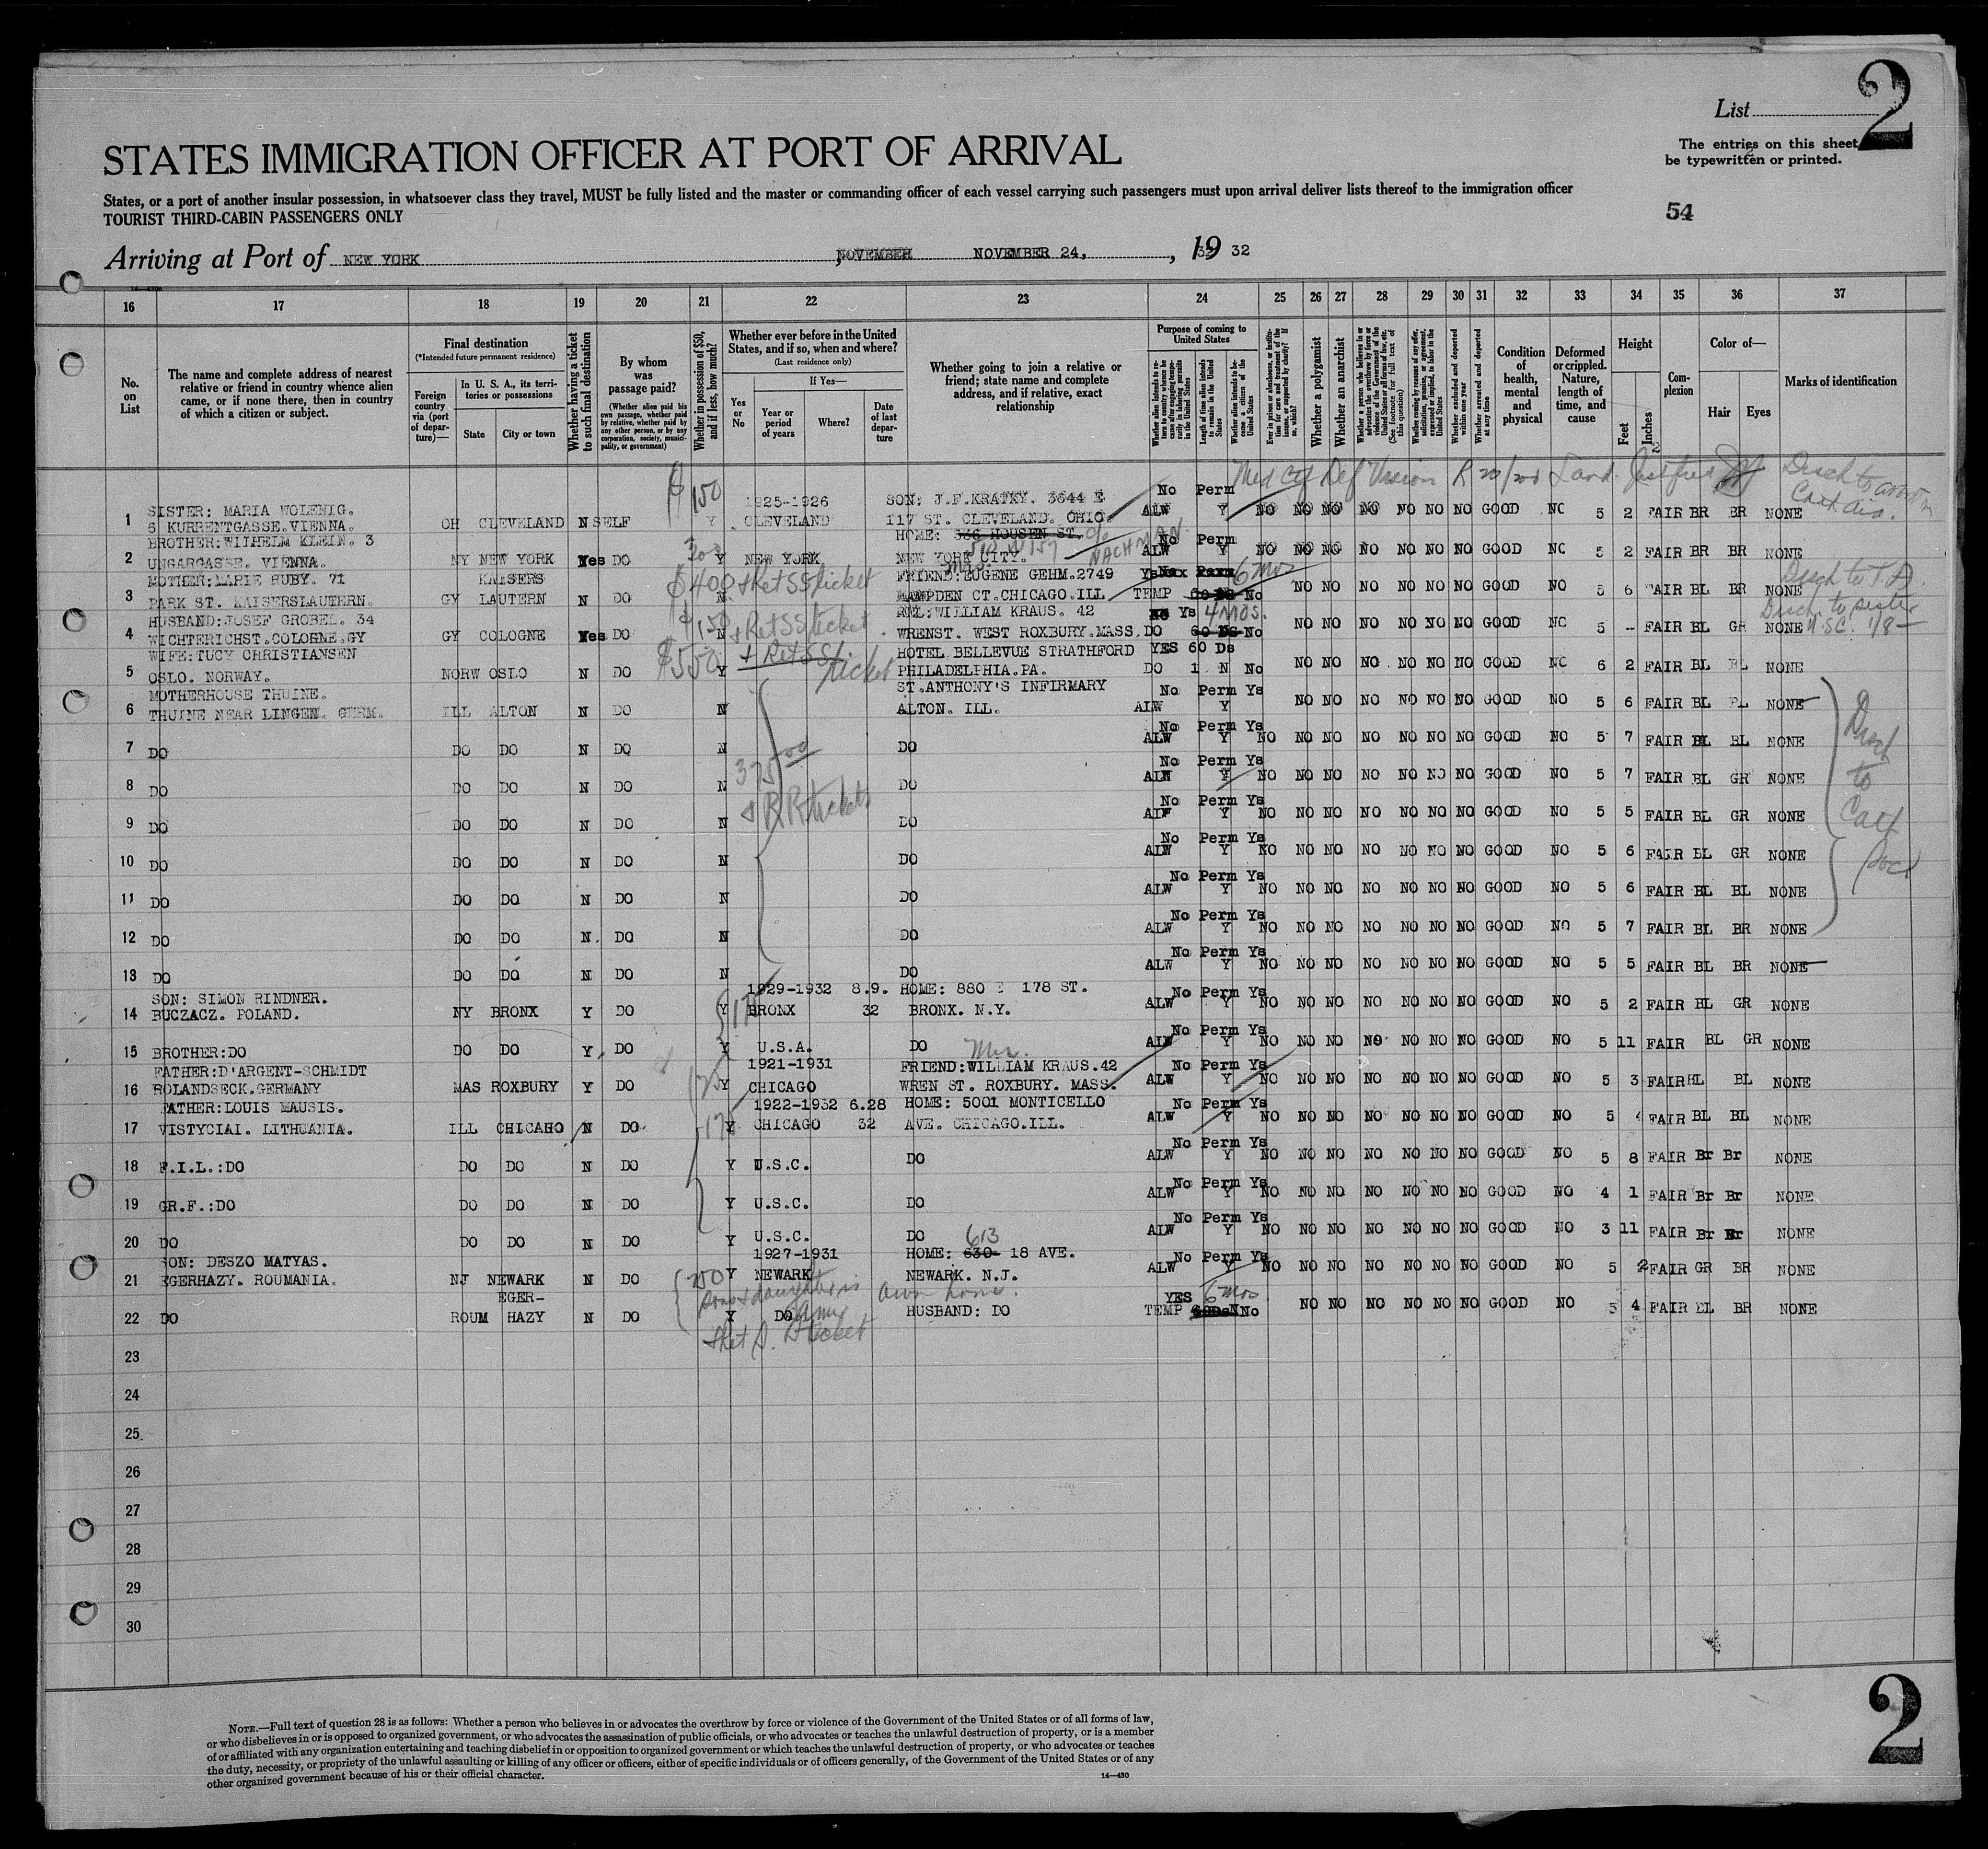 List
2
The entries on this sheet
be typewritten or printed.
STATES IMMIGRATION OFFICER AT PORT OF ARRIVAL
States, or a port of another insular possession, in whatsoever class they travel, MUST be fully listed and the master or commanding officer of each vessel carrying such passengers must upon arrival deliver lists thereof to the immigration officer
TOURIST THIRD-CABIN PASSENGERS ONLY
54
Arriving at Port of NEW YORK, NOVEMBER NOVEMBER 24, , 19 32
16 17 18 19 20 21 22 23 24 25 26 27 28 29 30 31 32 33 34 35 36 37
No. on List
The name and complete address of nearest relative or friend in country whence alien came, or if none there, then in country of which a citizen or subject.
Final destination
(*Intended future permanent residence)
Foreign country via (port of departure)—
In U. S. A., its territories or possessions
State
City or town
Whether having a ticket to such final destination
By whom was passage paid?
(Whether alien paid his own passage, whether paid by relative, whether paid by any other person, or by any corporation, society, municipality, or government)
Whether in possession of $50, and if less, how much?
Whether ever before in the United States, and if so, when and where?
(Last residence only)
If Yes—
Yes or No
Year or period of years
Where?
Date of last departure
Whether going to join a relative or friend; state name and complete address, and if relative, exact relationship
Purpose of coming to United States
Length of time alien intends to remain in the United States
Whether alien intends to become a citizen of the United States
Whether a polygamist
Whether an anarchist
Whether excluded and deported within one year
Whether arrested and deported at any time
Condition of health, mental and physical
Deformed or crippled. Nature, length of time, and cause
Height
Feet
Inches
Complexion
Color of—
Hair
Eyes
Marks of identification
$150 1925-1926 SON: J.F.KRATKY. 3644 E No Perm
SISTER: MARIA WOLENIG.
1 6 KURRENTGASSE.VIENNA. OH CLEVELAND N SELF Y CLEVELAND 117 ST. CLEVELAND. OHIO. ALW Y NO NO NO NO NO NO NO GOOD NO 5 2 FAIR BR BR NONE
BROTHER:WILHELM KLEIN. 3 HOME: 336 HOUSEN ST. No Perm
2 UNGARGASSE. VIENNA. NY NEW YORK Yes DO Y NEW YORK NEW YORK CITY. NACHMAN ALW Y NO NO NO NO NO NO NO GOOD NO 5 2 FAIR BR BR NONE
MOTHER:MARIE RUBY. 71 KAISERS $400 + Ret SS ticket FRIEND:EUGENE GEHM.2749 6 mos
3 PARK ST. KAISERSLAUTERN. GY LAUTERN N DO N HAMPDEN CT.CHICAGO.ILL TEMP No NO NO NO NO NO NO GOOD NO 5 6 FAIR BL BR NONE
HUSBAND:JOSEF GROBEL. 34 $150 + Ret SS ticket REL:WILLIAM KRAUS. 42 Ys 4 MOS.
4 WICHTERICHST.COLOGNE.GY GY COLOGNE Yes DO WRENST. WEST ROXBURY.MASS. DO 60 DS No NO NO NO NO NO NO GOOD NO 5 - FAIR BL GR NONE
WIFE:TUCY CHRISTIANSEN $550 + Ret SS ticket HOTEL BELLEVUE STRATHFORD YES 60 Ds
5 OSLO. NORWAY. NORW OSLO N DO Y PHILADELPHIA.PA. DO 1 N No NO NO NO NO NO NO GOOD NO 6 2 FAIR BL BL NONE
MOTHERHOUSE THUINE. ST.ANTHONY'S INFIRMARY No Perm Ys
6 THUINE NEAR LINGEN. GERM. ILL ALTON N DO N ALTON. ILL. ALW Y NO NO NO NO NO NO GOOD NO 5 6 FAIR BL BL NONE
No Perm Ys
7 DO DO DO N DO N DO ALW Y NO NO NO NO NO NO NO GOOD NO 5 7 FAIR BL BL NONE
No Perm Ys
8 DO DO DO N DO N DO ALW Y NO NO NO NO NO NO NO GOOD NO 5 7 FAIR BL GR NONE
375 00 + RR tickets
Disch to
No Perm Ys
9 DO DO DO N DO N DO ALW Y NO NO NO NO NO NO NO GOOD NO 5 5 FAIR BL GR NONE
No Perm Ys
10 DO DO DO N DO N DO ALW Y NO NO NO NO NO NO NO GOOD NO 5 6 FAIR BL GR NONE
No Perm Ys
11 DO DO DO N DO N DO ALW Y NO NO NO NO NO NO NO GOOD NO 5 6 FAIR BL BL NONE
No Perm Ys
12 DO DO DO N DO N DO ALW Y NO NO NO NO NO NO NO GOOD NO 5 7 FAIR BL BR NONE
No Perm Ys
13 DO DO DO N DO N DO ALW Y NO NO NO NO NO NO NO GOOD NO 5 5 FAIR BL BR NONE
SON: SIMON RINDNER. 1929-1932 8.9. HOME: 880 E 178 ST. No Perm Ys
14 BUCZACZ. POLAND. NY BRONX Y DO Y BRONX 32 BRONX. N.Y. ALW Y NO NO NO NO NO NO NO GOOD NO 5 2 FAIR BL GR NONE
No Perm Ys
15 BROTHER:DO DO DO Y DO Y U.S.A. DO ALW Y NO NO NO NO NO NO NO GOOD NO 5 11 FAIR BL GR NONE
FATHER:D'ARGENT-SCHMIDT 1921-1931 FRIEND:WILLIAM KRAUS.42 No Perm Ys
16 ROLANDSECK.GERMANY MAS ROXBURY Y DO Y CHICAGO WREN ST. ROXBURY. MASS. ALW Y NO NO NO NO NO NO NO GOOD NO 5 3 FAIR BL BL NONE
FATHER:LOUIS MAUSIS. 1922-1932 6.28 HOME: 5001 MONTICELLO No Perm Ys
17 VISTYCIAI. LITHUANIA. ILL CHICAHO N DO Y CHICAGO 32 AVE. CHICAGO.ILL. ALW Y NO NO NO NO NO NO NO GOOD NO 5 4 FAIR BL BL NONE
No Perm Ys
18 F.I.L.:DO DO DO N DO Y U.S.C. DO ALW Y NO NO NO NO NO NO NO GOOD NO 5 8 FAIR Br Br NONE
No Perm Ys
19 GR.F.:DO DO DO N DO Y U.S.C. DO ALW Y NO NO NO NO NO NO NO GOOD NO 4 1 FAIR Br Br NONE
No Perm Ys
20 DO DO DO N DO Y U.S.C. DO ALW Y NO NO NO NO NO NO NO GOOD NO 3 11 FAIR Br Br NONE
SON: DESZO MATYAS. 1927-1931 HOME: 630 613 18 AVE. No Perm Ys
21 EGERHAZY. ROUMANIA. NJ NEWARK N DO 250 Y NEWARK NEWARK. N.J. ALW Y NO NO NO NO NO NO NO GOOD NO 5 2 FAIR GR BR NONE
EGER- own home. YES 6 mos
22 DO ROUM HAZY N DO Y DO HUSBAND: DO TEMP 60Ds No NO NO NO NO NO NO GOOD NO 5 4 FAIR BL BR NONE
23
24
25
26
27
28
29
30
NOTE.—Full text of question 28 is as follows: Whether a person who believes in or advocates the overthrow by force or violence of the Government of the United States or of all forms of law,
or who disbelieves in or is opposed to organized government, or who advocates the assassination of public officials, or who advocates or teaches the unlawful destruction of property, or is a member
of or affiliated with any organization entertaining and teaching disbelief in or opposition to organized government or which teaches the unlawful destruction of property, or who advocates or teaches
the duty, necessity, or propriety of the unlawful assaulting or killing of any officer or officers, either of specific individuals or of officers generally, of the Government of the United States or of any
other organized government because of his or their official character.
14—430
2